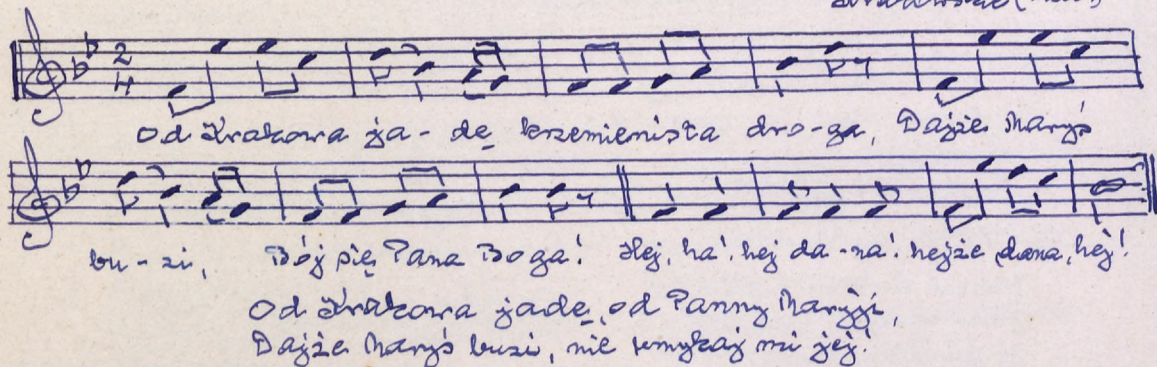 2
4
Od Krakowa ja-dę krzemienista dro-ga, Dajże Maryś
bu-zi, Bój się Pana Boga! Hej, ha! hej da-na! hejże dana, hej!
Od Krakowa jadę, od Panny Maryji,
Dajże Maryś buzi, nie umykaj mi jej!